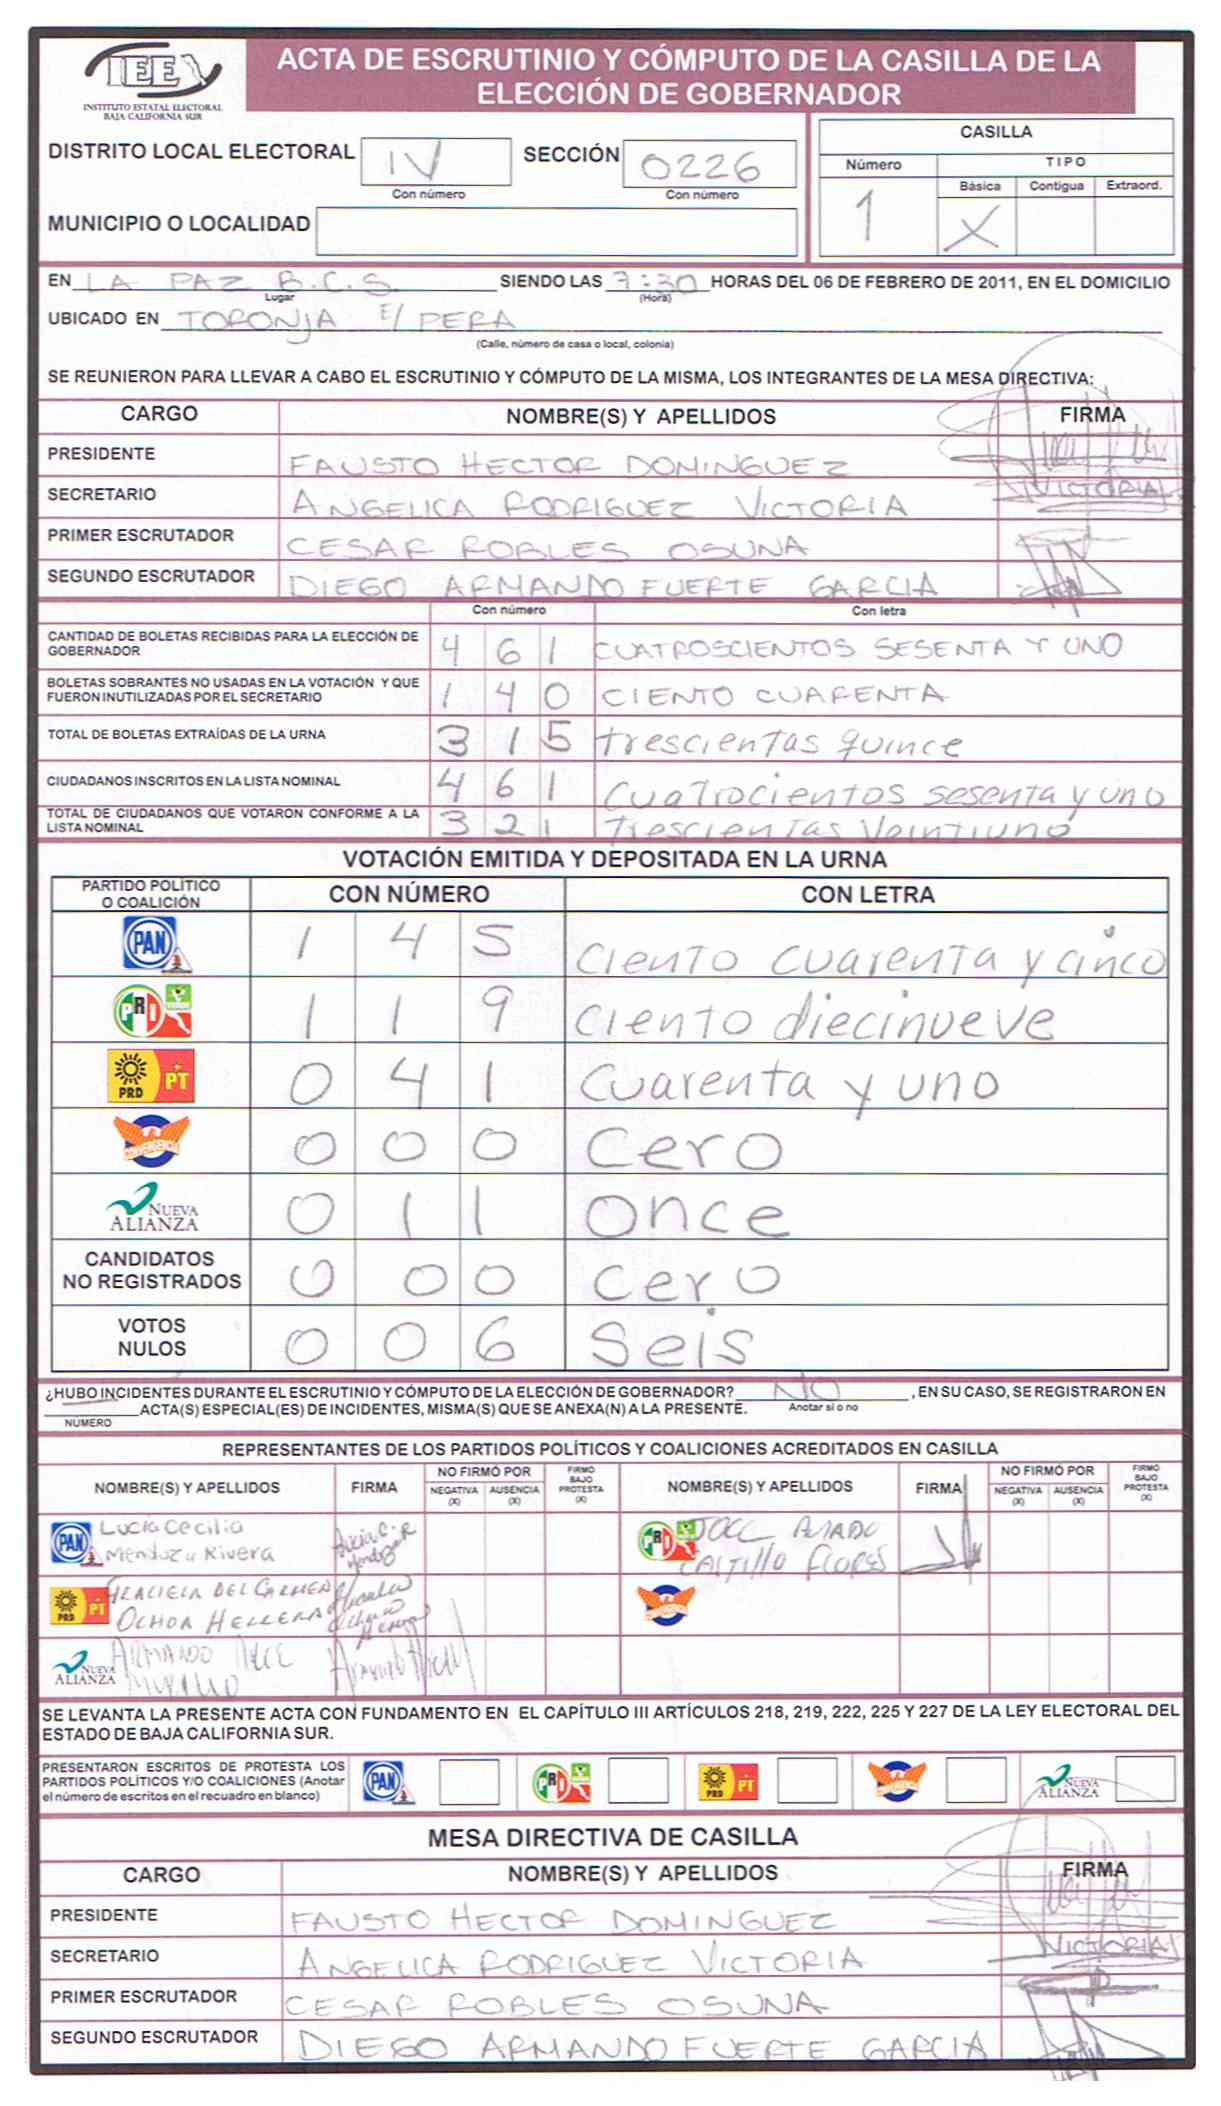 IEE
INSTITUTO ESTATAL ELECTORAL
BAJA CALIFORNIA SUR
ACTA DE ESCRUTINIO Y CÓMPUTO DE LA CASILLA DE LA
ELECCIÓN DE GOBERNADOR
DISTRITO LOCAL ELECTORAL IV SECCIÓN 0226
Con número Con número
MUNICIPIO O LOCALIDAD
CASILLA
Número TIPO
Básica Contigua Extraord.
1 X
EN LA PAZ B.C.S. SIENDO LAS 7:30 HORAS DEL 06 DE FEBRERO DE 2011, EN EL DOMICILIO
Lugar (Hora)
UBICADO EN TORONJA E/ PERA
(Calle, número de casa o local, colonia)
SE REUNIERON PARA LLEVAR A CABO EL ESCRUTINIO Y CÓMPUTO DE LA MISMA, LOS INTEGRANTES DE LA MESA DIRECTIVA:
CARGO NOMBRE(S) Y APELLIDOS FIRMA
PRESIDENTE FAUSTO HECTOR DOMINGUEZ
SECRETARIO ANGELICA RODRIGUEZ VICTORIA VICTORIA
PRIMER ESCRUTADOR CESAR ROBLES OSUNA
SEGUNDO ESCRUTADOR DIEGO ARMANDO FUERTE GARCIA
Con número Con letra
CANTIDAD DE BOLETAS RECIBIDAS PARA LA ELECCIÓN DE
GOBERNADOR 4 6 1 CUATROSCIENTOS SESENTA Y UNO
BOLETAS SOBRANTES NO USADAS EN LA VOTACIÓN Y QUE
FUERON INUTILIZADAS POR EL SECRETARIO 1 4 0 CIENTO CUARENTA
TOTAL DE BOLETAS EXTRAÍDAS DE LA URNA 3 1 5 trescientas quince
CIUDADANOS INSCRITOS EN LA LISTA NOMINAL 4 6 1 Cuatrocientos sesenta y uno
TOTAL DE CIUDADANOS QUE VOTARON CONFORME A LA
LISTA NOMINAL 3 2 1 Trescientas Veintiuno
VOTACIÓN EMITIDA Y DEPOSITADA EN LA URNA
PARTIDO POLÍTICO
O COALICIÓN CON NÚMERO CON LETRA
PAN 1 4 5 Ciento cuarenta y cinco
PRI 1 1 9 Ciento diecinueve
PRD PT 0 4 1 Cuarenta y uno
CONVERGENCIA 0 0 0 Cero
NUEVA ALIANZA 0 1 1 Once
CANDIDATOS
NO REGISTRADOS 0 0 0 Cero
VOTOS
NULOS 0 0 6 Seis
¿HUBO INCIDENTES DURANTE EL ESCRUTINIO Y CÓMPUTO DE LA ELECCIÓN DE GOBERNADOR? NO , EN SU CASO, SE REGISTRARON EN
ACTA(S) ESPECIAL(ES) DE INCIDENTES, MISMA(S) QUE SE ANEXA(N) A LA PRESENTE. Anotar sí o no
NÚMERO
REPRESENTANTES DE LOS PARTIDOS POLÍTICOS Y COALICIONES ACREDITADOS EN CASILLA
NOMBRE(S) Y APELLIDOS FIRMA NO FIRMÓ POR NEGATIVA (X) AUSENCIA (X) FIRMÓ BAJO PROTESTA (X) NOMBRE(S) Y APELLIDOS FIRMA NO FIRMÓ POR NEGATIVA (X) AUSENCIA (X) FIRMÓ BAJO PROTESTA (X)
PAN Lucía Cecilia
Mendoza Rivera
PRI
CASTILLO FLORES
PRD PT GRACIELA DEL CARMEN
OCHOA HERRERA
NUEVA ALIANZA ARMANDO
SE LEVANTA LA PRESENTE ACTA CON FUNDAMENTO EN EL CAPÍTULO III ARTÍCULOS 218, 219, 222, 225 Y 227 DE LA LEY ELECTORAL DEL
ESTADO DE BAJA CALIFORNIA SUR.
PRESENTARON ESCRITOS DE PROTESTA LOS
PARTIDOS POLÍTICOS Y/O COALICIONES (Anotar
el número de escritos en el recuadro en blanco)
PAN PRI PRD PT NUEVA ALIANZA
MESA DIRECTIVA DE CASILLA
CARGO NOMBRE(S) Y APELLIDOS FIRMA
PRESIDENTE FAUSTO HECTOR DOMINGUEZ
SECRETARIO ANGELICA RODRIGUEZ VICTORIA VICTORIA
PRIMER ESCRUTADOR CESAR ROBLES OSUNA
SEGUNDO ESCRUTADOR DIEGO ARMANDO FUERTE GARCIA